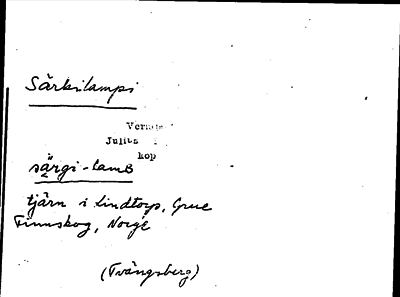 Särkilampi
Julius
kop
särgi-lamb
tjärn i Lindtorp, Grue
Finnskog, Norge
(Tvängsberg)